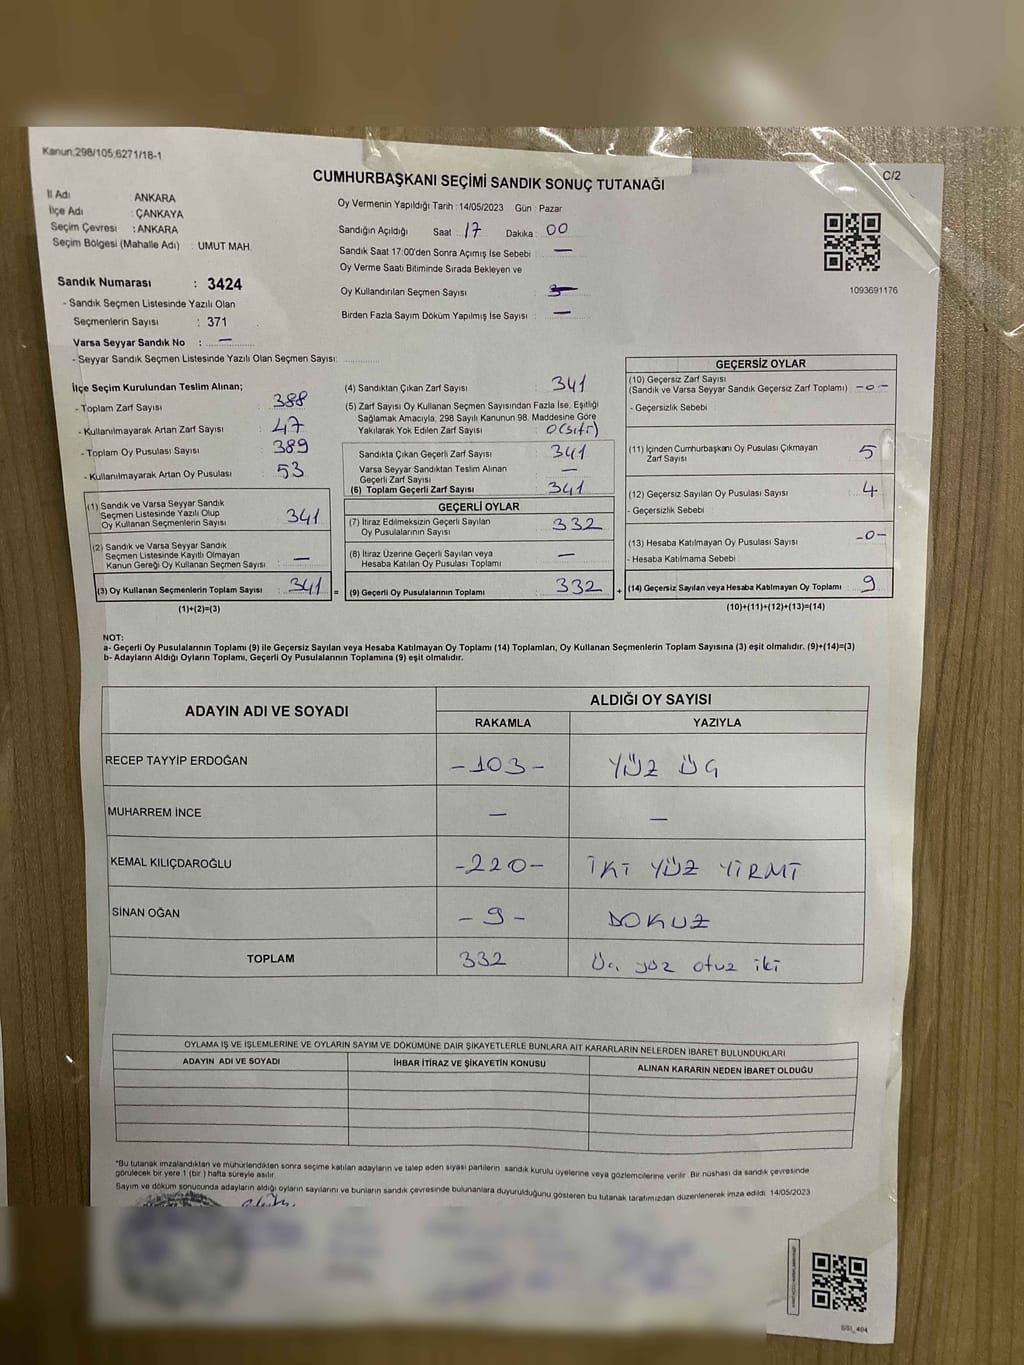 Kanun:298/105;6271/18-1
C/2
CUMHURBAŞKANI SEÇİMİ SANDIK SONUÇ TUTANAĞI
İl Adı ANKARA
İlçe Adı : ÇANKAYA
Seçim Çevresi : ANKARA
Seçim Bölgesi (Mahalle Adı) : UMUT MAH.
Oy Vermenin Yapıldığı Tarih : 14/05/2023 Gün : Pazar
Sandığın Açıldığı Saat 17 Dakika 00
Sandık Saat 17:00'den Sonra Açımış İse Sebebi —
Oy Verme Saati Bitiminde Sırada Bekleyen ve
Oy Kullandırılan Seçmen Sayısı :
Birden Fazla Sayım Döküm Yapılmış İse Sayısı : —
1093691176
Sandık Numarası : 3424
- Sandık Seçmen Listesinde Yazılı Olan
Seçmenlerin Sayısı : 371
Varsa Seyyar Sandık No : —
- Seyyar Sandık Seçmen Listesinde Yazılı Olan Seçmen Sayısı:
İlçe Seçim Kurulundan Teslim Alınan;
- Toplam Zarf Sayısı : 388
- Kullanılmayarak Artan Zarf Sayısı : 47
- Toplam Oy Pusulası Sayısı : 389
- Kullanılmayarak Artan Oy Pusulası : 53
(1) Sandık ve Varsa Seyyar Sandık
Seçmen Listesinde Yazılı Olup
Oy Kullanan Seçmenlerin Sayısı : 341
(2) Sandık ve Varsa Seyyar Sandık
Seçmen Listesinde Kayıtlı Olmayan
Kanun Gereği Oy Kullanan Seçmen Sayısı : —
(3) Oy Kullanan Seçmenlerin Toplam Sayısı : 341 =
(1)+(2)=(3)
(4) Sandıktan Çıkan Zarf Sayısı : 341
(5) Zarf Sayısı Oy Kullanan Seçmen Sayısından Fazla İse, Eşitliği
Sağlamak Amacıyla, 298 Sayılı Kanunun 98. Maddesine Göre
Yakılarak Yok Edilen Zarf Sayısı : 0 (sıfır)
Sandıkta Çıkan Geçerli Zarf Sayısı : 341
Varsa Seyyar Sandıktan Teslim Alınan
Geçerli Zarf Sayısı : —
(6) Toplam Geçerli Zarf Sayısı : 341
GEÇERLİ OYLAR
(7) İtiraz Edilmeksizin Geçerli Sayılan
Oy Pusulalarının Sayısı : 332
(8) İtiraz Üzerine Geçerli Sayılan veya
Hesaba Katılan Oy Pusulası Toplamı : —
(9) Geçerli Oy Pusulalarının Toplamı : 332 +
GEÇERSİZ OYLAR
(10) Geçersiz Zarf Sayısı
(Sandık ve Varsa Seyyar Sandık Geçersiz Zarf Toplamı) : -0-
- Geçersizlik Sebebi
(11) İçinden Cumhurbaşkanı Oy Pusulası Çıkmayan
Zarf Sayısı : 5
(12) Geçersiz Sayılan Oy Pusulası Sayısı : 4
- Geçersizlik Sebebi
(13) Hesaba Katılmayan Oy Pusulası Sayısı : -0-
- Hesaba Katılmama Sebebi
(14) Geçersiz Sayılan veya Hesaba Katılmayan Oy Toplamı : 9
(10)+(11)+(12)+(13)=(14)
NOT:
a- Geçerli Oy Pusulalarının Toplamı (9) ile Geçersiz Sayılan veya Hesaba Katılmayan Oy Toplamı (14) Toplamları, Oy Kullanan Seçmenlerin Toplam Sayısına (3) eşit olmalıdır. (9)+(14)=(3)
b- Adayların Aldığı Oyların Toplamı, Geçerli Oy Pusulalarının Toplamına (9) eşit olmalıdır.
ADAYIN ADI VE SOYADI ALDIĞI OY SAYISI
RAKAMLA YAZIYLA
RECEP TAYYİP ERDOĞAN -103- YÜZ ÜÇ
MUHARREM İNCE — —
KEMAL KILIÇDAROĞLU -220- İKİ YÜZ YİRMİ
SİNAN OĞAN - 9 - DOKUZ
TOPLAM 332 Üç yüz otuz iki
OYLAMA İŞ VE İŞLEMLERİNE VE OYLARIN SAYIM VE DÖKÜMÜNE DAİR ŞİKAYETLERLE BUNLARA AİT KARARLARIN NELERDEN İBARET BULUNDUKLARI
ADAYIN ADI VE SOYADI İHBAR İTİRAZ VE ŞİKAYETİN KONUSU ALINAN KARARIN NEDEN İBARET OLDUĞU
*Bu tutanak imzalandıktan ve mühürlendikten sonra seçime katılan adayların ve talep eden siyasi partilerin sandık kurulu üyelerine veya gözlemcilerine verilir. Bir nüshası da sandık çevresinde
görülecek bir yere 1 (bir ) hafta süreyle asılır.
Sayım ve döküm sonucunda adayların aldığı oyların sayılarını ve bunların sandık çevresinde bulunanlara duyurulduğunu gösteren bu tutanak tarafımızdan düzenlenerek imza edildi. 14/05/2023
SSI_404